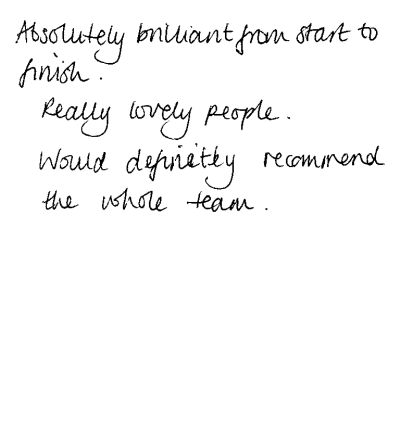 Absolutely brilliant from start to
finish.
Really lovely people.
Would definitely recommend
the whole team.